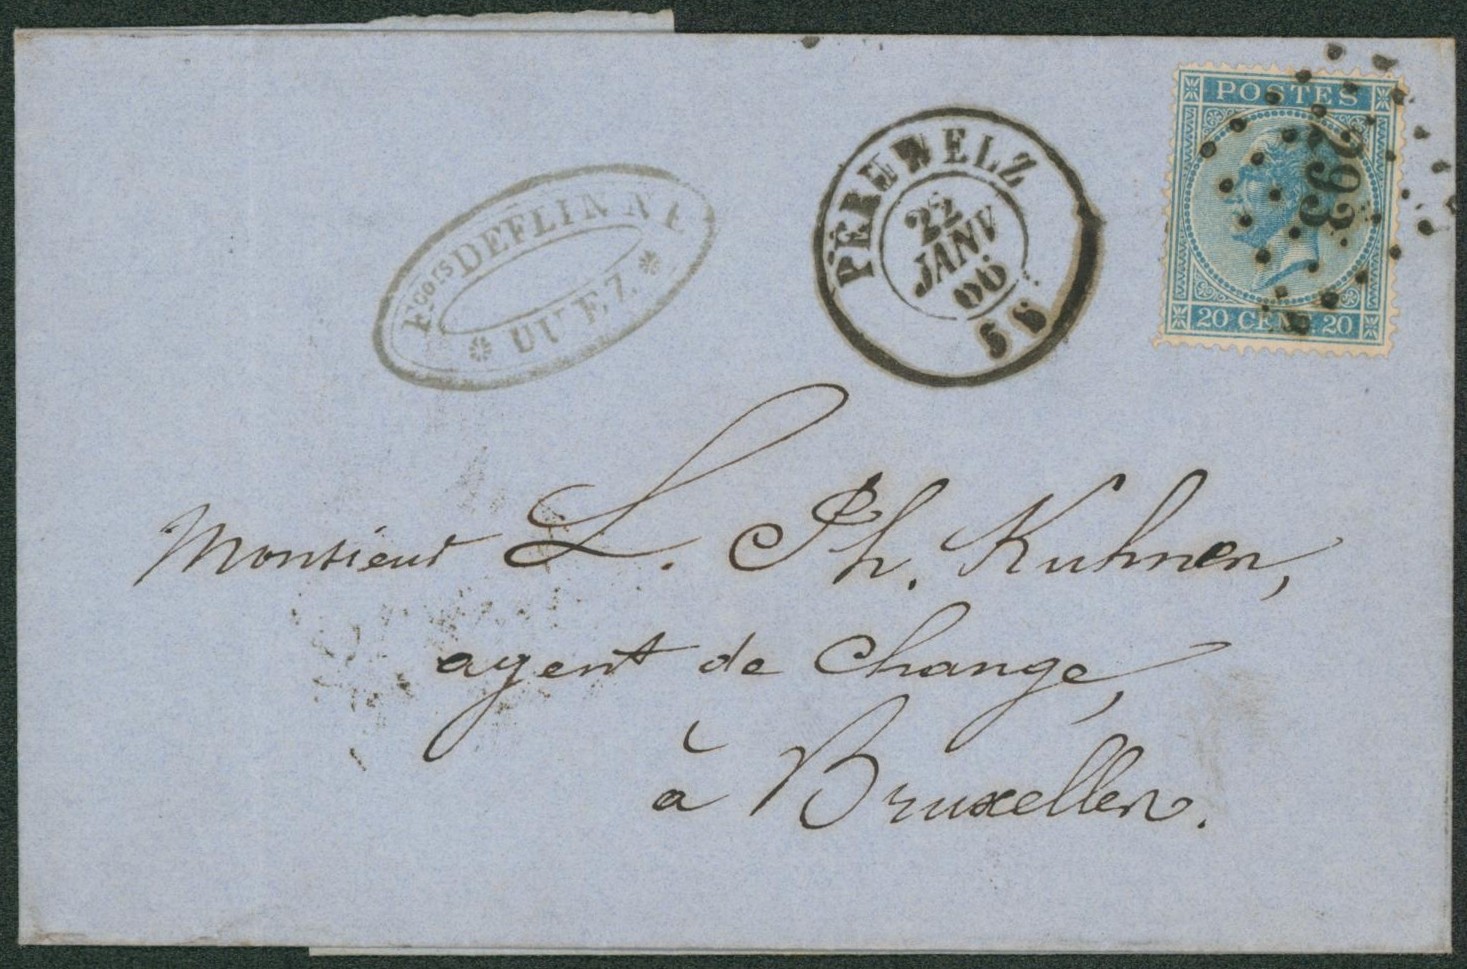 POSTES
293
20 CEN . 20
PERUWELZ
22
JANV
66
5 S
Fçois DEFLINNE
* DUEZ *
Monsieur L. Ph. Kuhnen,
agent de Change,
à Bruxelles.